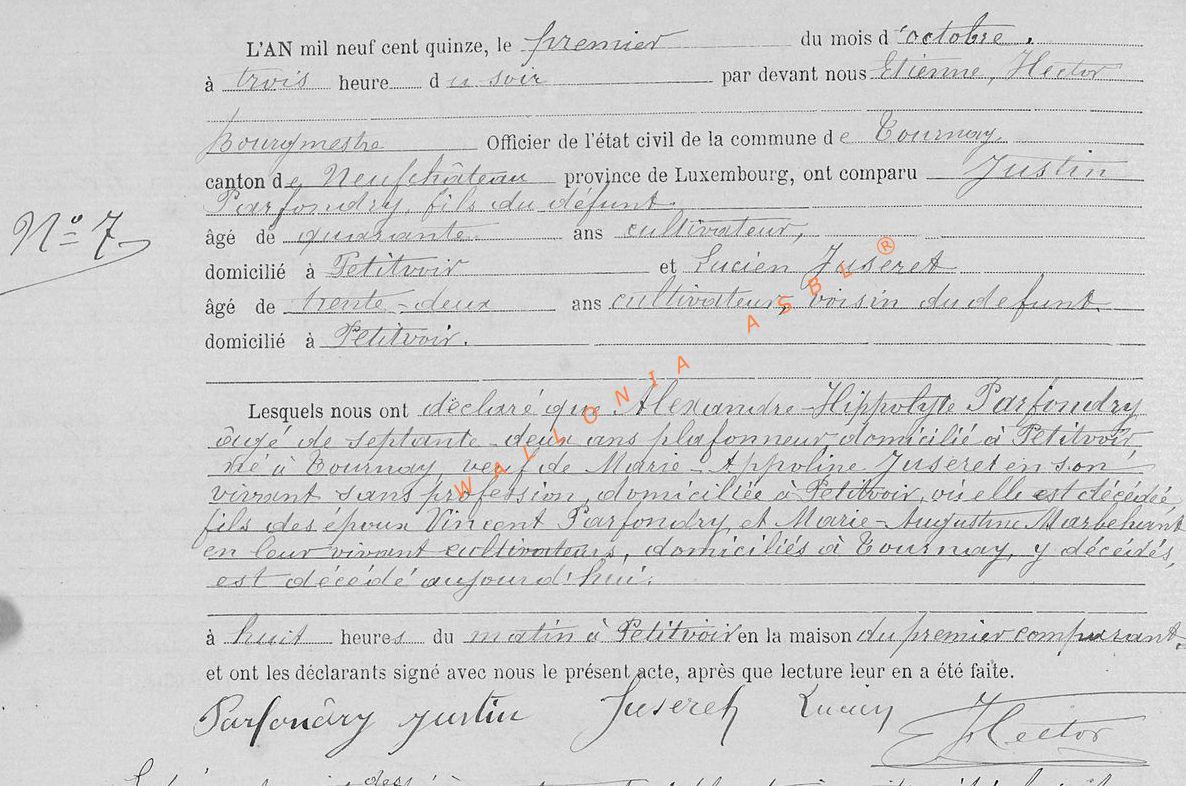 L'AN mil neuf cent quinze, le premier du mois d'octobre.
à trois heure du soir par devant nous Etienne, Hector
Bourgmestre Officier de l'état civil de la commune de Tournay.
canton de Neufchâteau province de Luxembourg, ont comparu Justin
Parfondry, fils du défunt.
N° 7
âgé de quarante ans cultivateur,
domicilié à Petitvoir et Lucien Juseret
âgé de trente-deux ans cultivateur, voisin du defunt.
domicilié à Petitvoir.
WALLONIA ASBL ®
Lesquels nous ont déclaré que Alexandre-Hippolyte Parfondry
âgé de septante-deux ans plafonneur domicilié à Petitvoir
né à Tournay, veuf de Marie-Appoline Juseret en son
vivant sans profession, domiciliée à Petitvoir, où elle est décédée
fils des époux Vincent Parfondry, et Marie-Augustine Marbehant
en leur vivant cultivateurs, domiciliés à Tournay, y décédés,
est décédé aujourd'hui.
à huit heures du matin à Petitvoir en la maison du premier comparant.
et ont les déclarants signé avec nous le présent acte, après que lecture leur en a été faite.
Parfondry Justin Juseret Lucien Hector